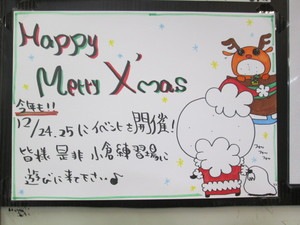 Happy
Merry X'mas
今年も!!
12/24.25にイベントを開催!
皆様 是非 小倉練習場に
遊びに来て下さい♪